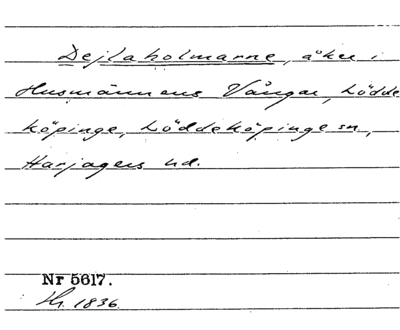 Dejlaholmarne, åker i
Husmännens Vångar, Lödde
köpinge, Löddeköpinge sn,
Harjagers hd.
Nr 5617.
Hr. 1836.